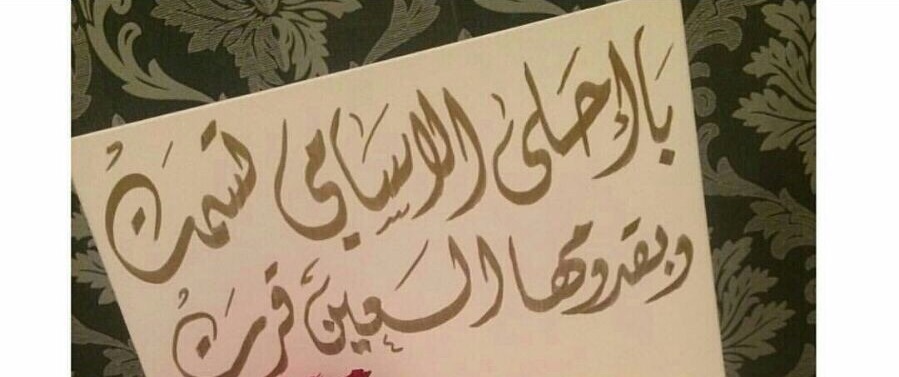 بَاإحلى الاسَامي تسمَت
وبقدومها العين قرت